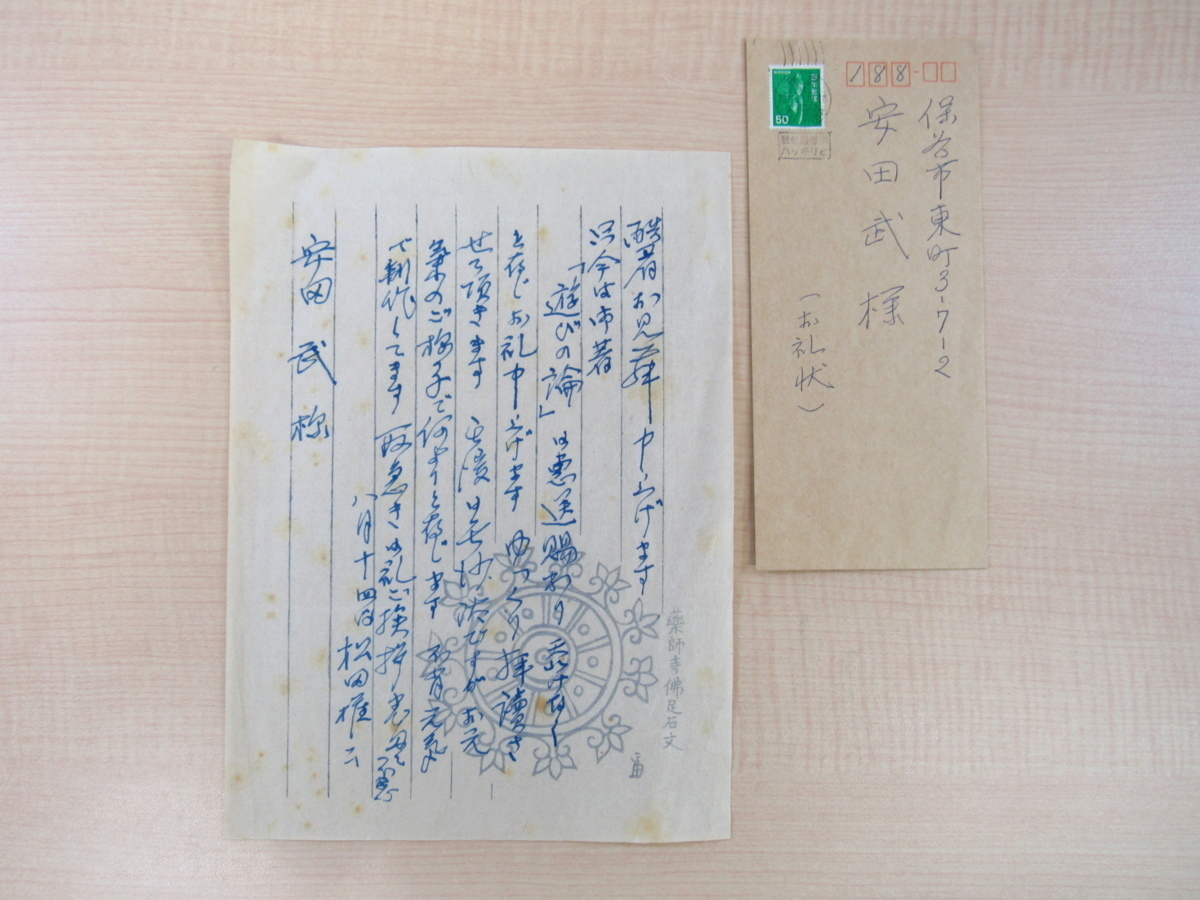 酷暑お見舞申し上げます
只今は御著
「遊びの論」御恵送賜わり忝けなく
と存じお礼申し上げます ゆっくり拝讀さ
せて頂きます 其後は
ご様子で何よりと存じます 不肖元気
で制作してます 取急ぎ御礼ご挨拶
八月十四日 松田権六
安田 武 様
薬師寺佛足石文
保谷市東町3-7-2
安田武様
(お礼状)
188
NIPPON
50